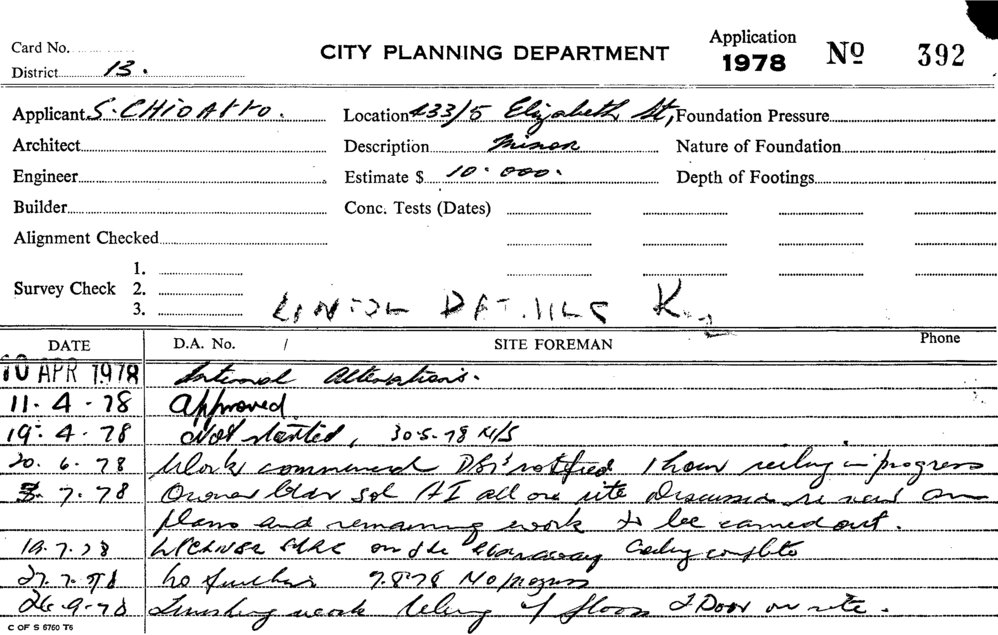 Card No.
District 13.
CITY PLANNING DEPARTMENT
Application
1978 No 392
Applicant S. CHIOATTO. Location 433/5 Elizabeth St, Foundation Pressure
Architect Description Minor Nature of Foundation
Engineer Estimate $ 10.000. Depth of Footings
Builder Conc. Tests (Dates)
Alignment Checked
Survey Check 1.
2.
3.
DATE D.A. No. / SITE FOREMAN Phone
10 APR 1978 Internal Alterations.
11.4.78 Approved
19.4.78 Not started, 30.5.78 N/S
20.6.78 Work commenced notified 1 hour ceiling in progress
7.78 Owner bldr all on site Discussion re new
plans and remaining work to be carried out.
19.7.78 on the Ceiling complete
27.7.78 no further 9.8.78 No progress
26.9.78 Finishing work of floor & Door on site.
C OF S 6760 T6